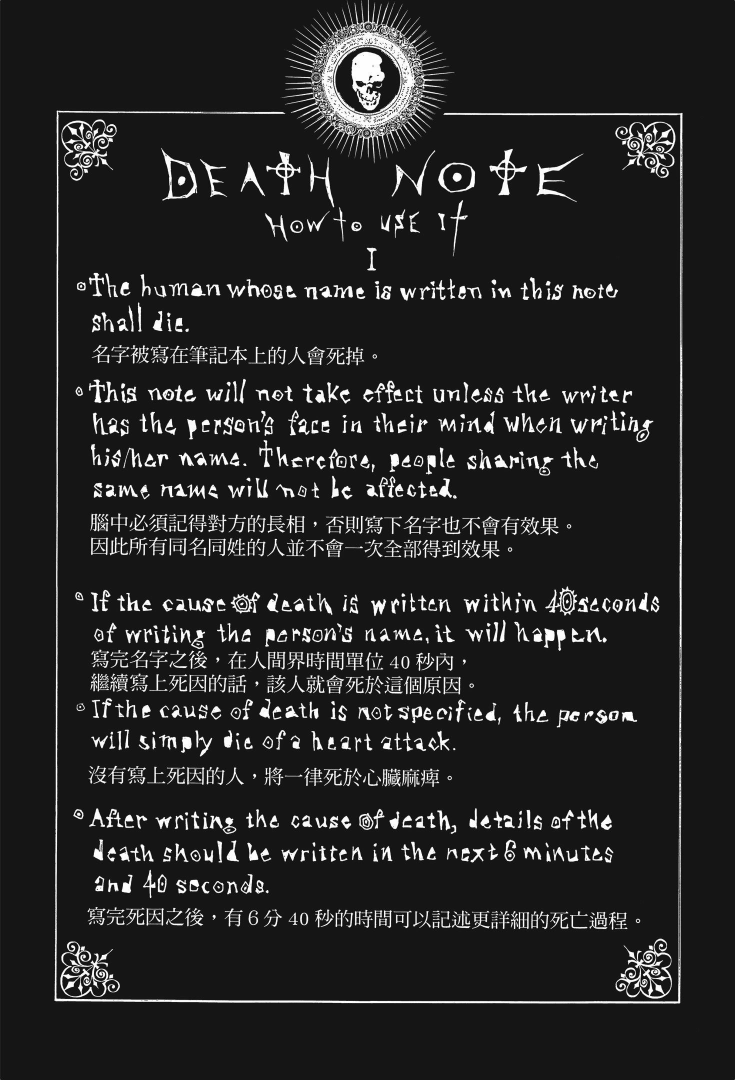 DEATH NOTE
HOW TO USE IT
I
The human whose name is written in this note
shall die.
名字被寫在筆記本上的人會死掉。
This note will not take effect unless the writer
has the person's face in their mind when writing
his/her name. Therefore, people sharing the
same name will not be affected.
腦中必須記得對方的長相,否則寫下名字也不會有效果。
因此所有同名同姓的人並不會一次全部得到效果。
If the cause of death is written within 40 seconds
of writing the person's name, it will happen.
寫完名字之後,在人間界時間單位 40 秒內,
繼續寫上死因的話,該人就會死於這個原因。
If the cause of death is not specified, the person
will simply die of a heart attack.
沒有寫上死因的人,將一律死於心臟麻痺。
After writing the cause of death, details of the
death should be written in the next 6 minutes
and 40 seconds.
寫完死因之後,有 6 分 40 秒的時間可以記述更詳細的死亡過程。